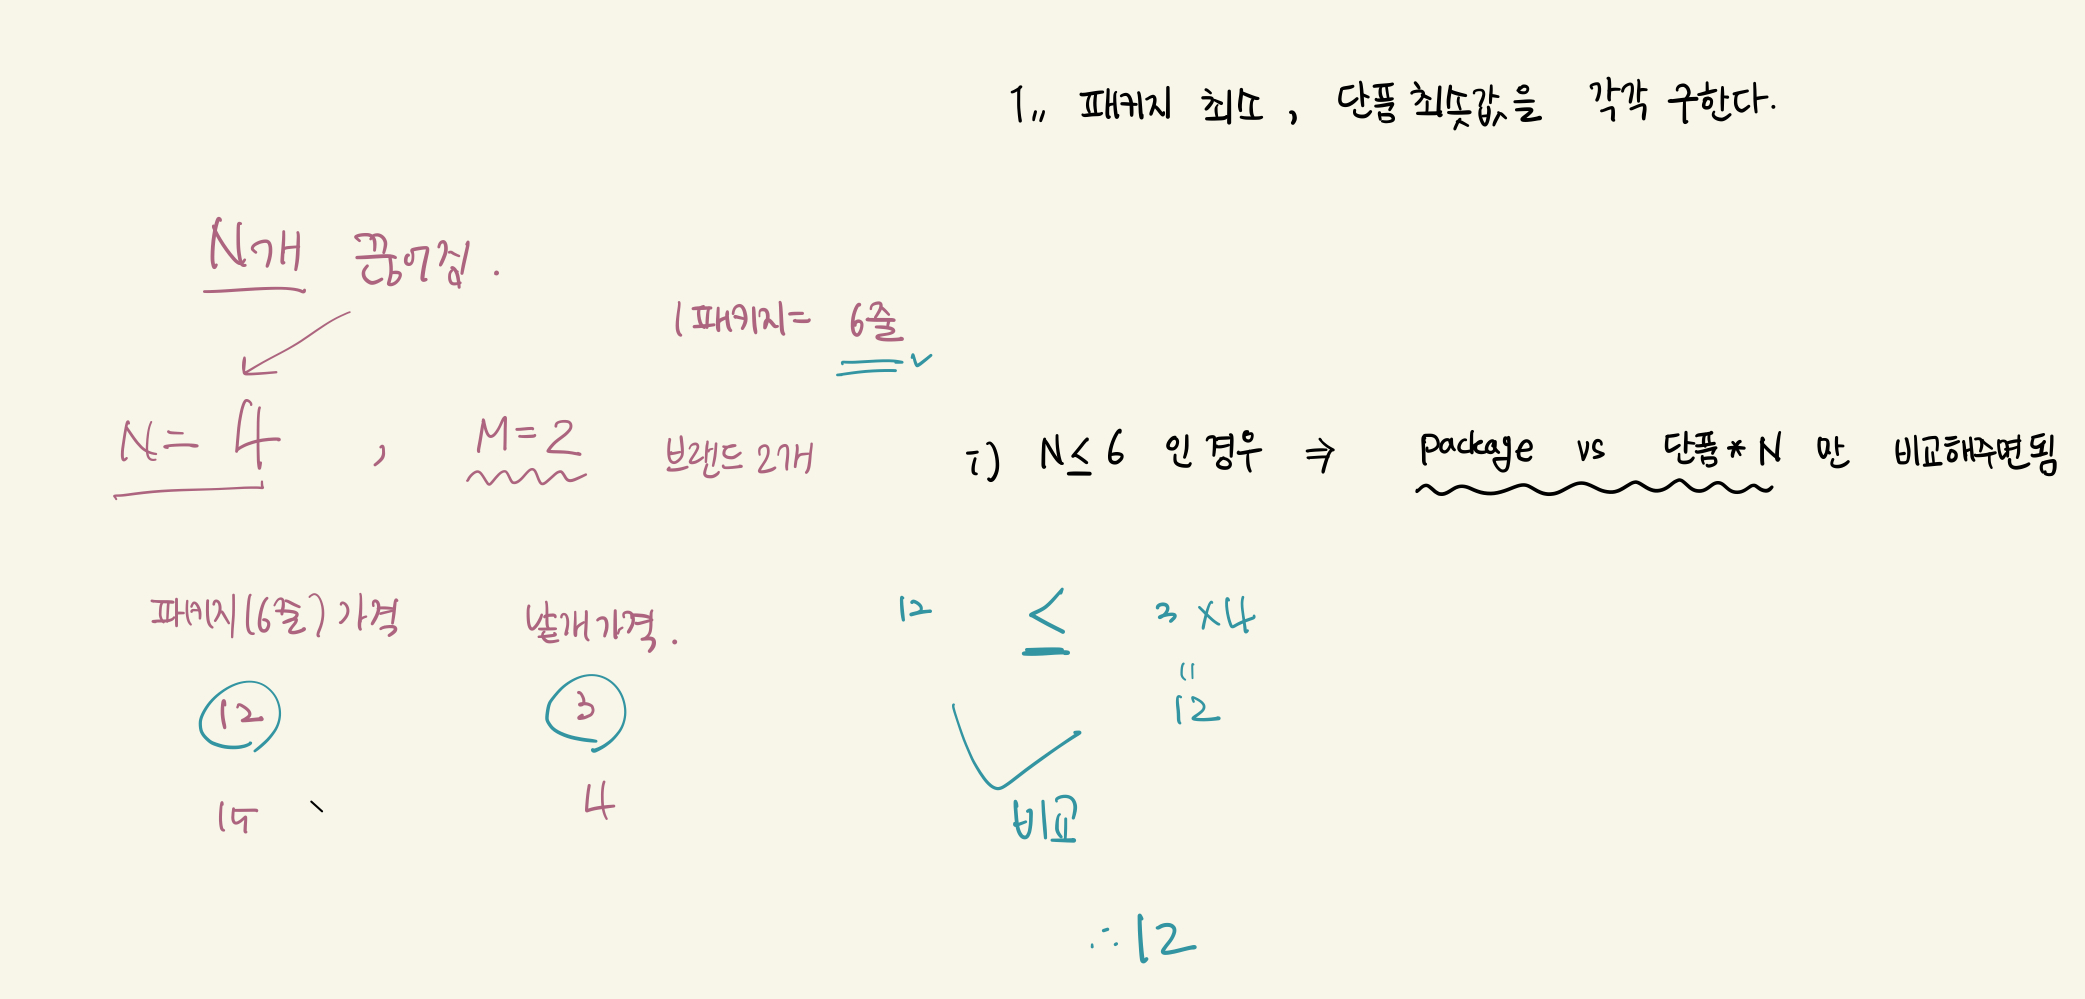 1,, 패키지 최소, 단품 최솟값을 각각 구한다.
N개 끊어짐.
1패키지= 6줄
N=4, M=2 브랜드 2개
i) N≤6 인 경우 ⇒ package vs 단품*N 만 비교해주면됨
패키지(6줄)가격 낱개가격.
12 ≤ 3×4
"
12
12 3
15 4
비교
∴12